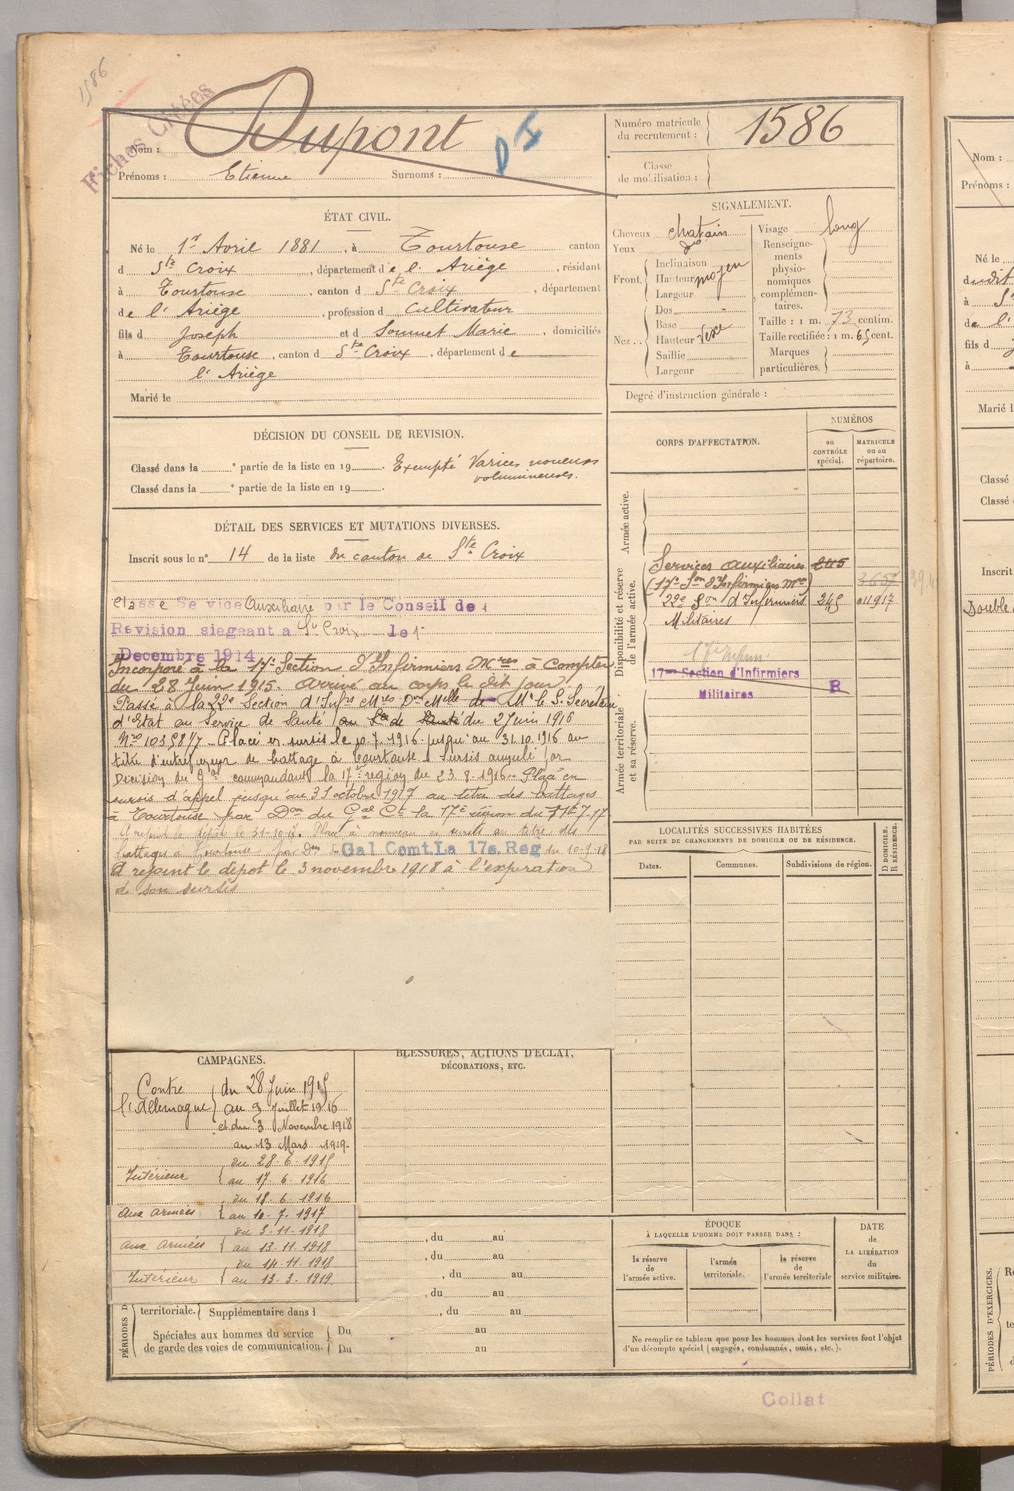 1586
Fiches Créées
Nom : Dupont
Prénoms : Etienne Surnoms :
Numéro matricule du recrutement : 1586
Classe de mobilisation :
ÉTAT CIVIL.
Né le 1er Avril 1881, à Tourtouse canton
d Ste Croix, département de l'Ariège, résidant
à Tourtouse, canton d Ste Croix, département
de l'Ariège, profession d Cultivateur
fils d Joseph et d Sounet Marie, domiciliés
à Tourtouse, canton d Ste Croix, département de
l'Ariège
Marié le
DÉCISION DU CONSEIL DE REVISION.
Classé dans la ° partie de la liste en 19 . Exempté Varices noueuses
Classé dans la ° partie de la liste en 19 . volumineuses.
DÉTAIL DES SERVICES ET MUTATIONS DIVERSES.
Inscrit sous le n° 14 de la liste du canton de Ste Croix
Classé Service Auxiliaire par le Conseil de
Revision siegeant a Ste Croix le 1
Decembre 1914
Incorporé à la 17e Section d'Infirmiers Mres à compter
du 28 Juin 1915. Arrivé au corps le dit jour
Passé à la 22e Section d'Infrs Mres Don Melle de Mr le S. Secrétaire
d'Etat au Service de Santé du 2 Juin 1916
No 10358 1/7. Placé en sursis le 10.7.1916 jusqu'au 31.10.1916 au
titre d'entrepreneur de battage à Tourtouse. Sursis annulé par
Décision du Gal commandant la 17e région du 23.8.1916. Placé en
sursis d'appel jusqu'au 31 octobre 1917 au titre des battages
à Tourtouse par Don du Gal Ct la 17e région du 7.17
A rejoint le dépôt le 31-10-17. Placé à nouveau en sursis au titre des
battages à Tourtouse par Don Gal Comt. La 17e. Reg du 10-9-18
A rejoint le dépôt le 3 novembre 1918 à l'expiration
de son sursis
SIGNALEMENT.
Cheveux chatain
Yeux do
Front. Inclinaison
Hauteur moyen
Largeur
Nez.. Dos
Base
Hauteur Vexe
Saillie
Largeur
Visage long
Renseignements physionomiques complémentaires.
Taille : 1 m. 73 centim.
Taille rectifiée : 1 m. 65 cent.
Marques particulières.
Degré d'instruction générale :
CORPS D'AFFECTATION.
NUMÉROS
au CONTRÔLE spécial.
MATRICULE ou au répertoire.
Armée active.
Disponibilité et réserve de l'armée active.
Services auxiliaires 245
(17e Son d'Infirmiers Mres)
22e Son d'Infirmiers 245 011917
Militaires
17me Section d'Infirmiers
Militaires R
Armée territoriale et sa réserve.
LOCALITÉS SUCCESSIVES HABITÉES
PAR SUITE DE CHANGEMENTS DE DOMICILE OU DE RÉSIDENCE.
Dates. Communes. Subdivisions de région.
D DOMICILE. R RÉSIDENCE.
CAMPAGNES.
Contre l'Allemagne du 28 Juin 1915
au 9 Juillet 1916
et du 3 Novembre 1918
au 13 Mars 1919
Intérieur du 28.6.1915
au 17.6.1916
Aux Armées du 18.6.1916
au 10.7.1917
Aux Armées du 3.11.1918
au 13.11.1918
Intérieur du 14.11.1918
au 13.3.1919
BLESSURES, ACTIONS D'ÉCLAT,
DÉCORATIONS, ETC.
, du au
, du au
, du au
, du au
territoriale. Supplémentaire dans l , du au
Spéciales aux hommes du service Du au
de garde des voies de communication. Du au
PÉRIODES D
ÉPOQUE
À LAQUELLE L'HOMME DOIT PASSER DANS :
la réserve de l'armée active.
l'armée territoriale.
la réserve de l'armée territoriale
DATE
de
LA LIBÉRATION
du
service militaire.
Ne remplir ce tableau que pour les hommes dont les services font l'objet
d'un décompte spécial (engagés, condamnés, omis, etc.).
Collat
Nom :
Prénoms :
Né le
à
fils d
à
Marié l
Classé
Classé
Inscrit
PÉRIODES D'EXERCICES.